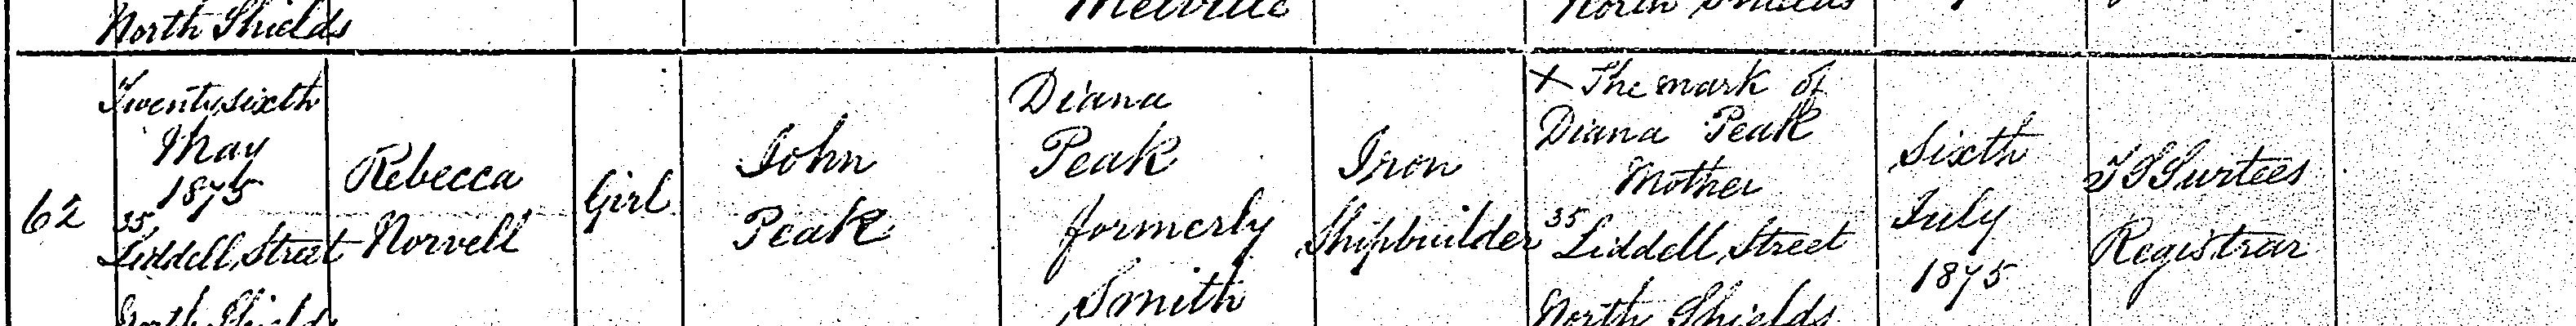 North Shields
Melville
North Shields
62
Twenty sixth
May
1875
35,
Liddell Street
North Shields
Rebecca
Norvell
Girl
John
Peak
Diana
Peak
formerly
Smith
Iron
Shipbuilder
X The mark of
Diana Peak
Mother
35
Liddell Street
North Shields
Sixth
July
1875
Surtees
Registrar